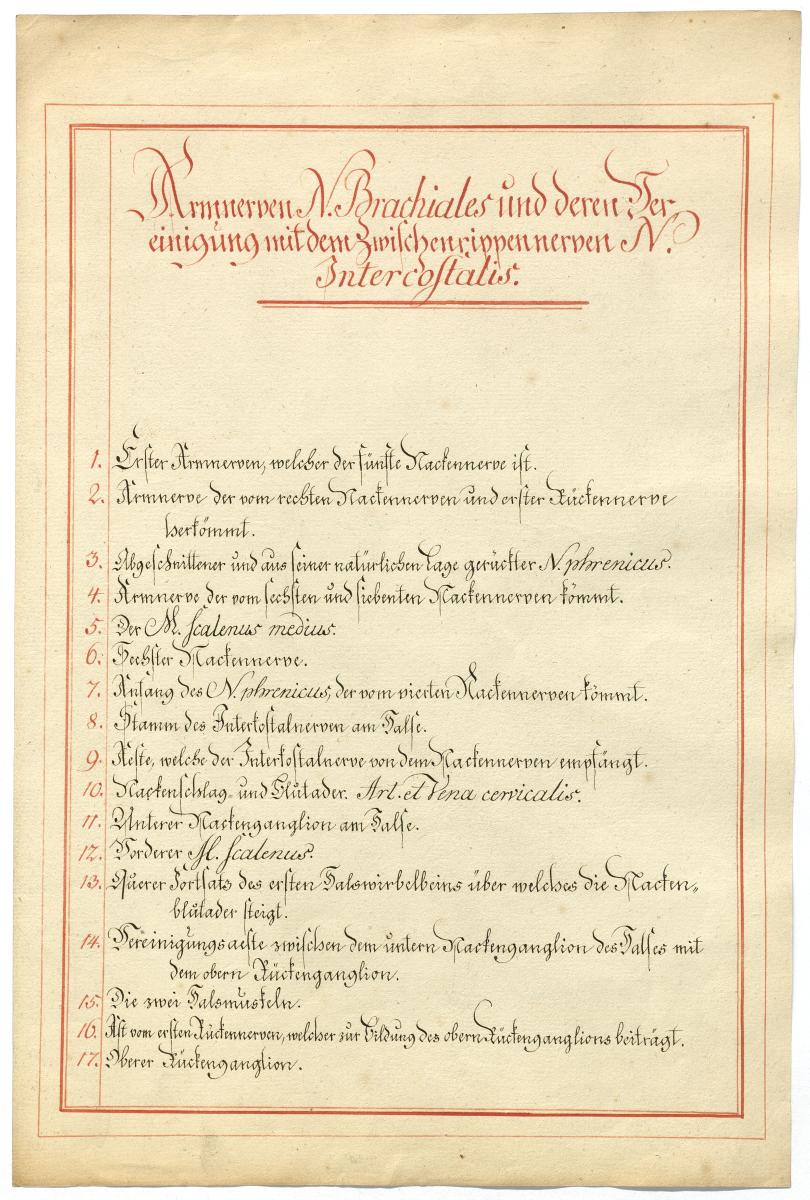 Armnerven N. Brachiales und deren Ver
einigung mit dem Zwischenrippennerven N.
Intercostalis.
1. Erster Armnerven, welcher der fünfte Nackennerve ist.
2. Armnerve der vom rechten Nackennerven und erster Rückennerve
herkömmt.
3. Abgeschnittener und aus seiner natürlichen Lage gerückter N. phrenicus.
4. Armnerve der vom sechsten und siebenten Nackennerven kömmt.
5. Der M. Scalenus medius.
6. Sechster Nackennerve.
7. Anfang des N. phrenicus, der vom vierten Nackennerven kömmt.
8. Stamm des Interkostalnerven am Halse.
9. Aeste, welche der Interkostalnerve von dem Nackennerven empfängt.
10. Nackenschlag- und Blutader. Art. et Vena cervicalis.
11. Unterer Nackenganglion am Halse.
12. Vorderer M. Scalenus.
13. Querer Fortsatz des ersten Halswirbelbeins über welches die Nacken-
blutader steigt.
14. Vereinigungsaeste zwischen dem untern Nackenganglion des Halses mit
dem obern Rückenganglion.
15. Die zwei Halsmuskeln.
16. Ast vom ersten Rückennerven, welcher zur Bildung des obern Rückenganglions beiträgt.
17. Oberer Rückenganglion.